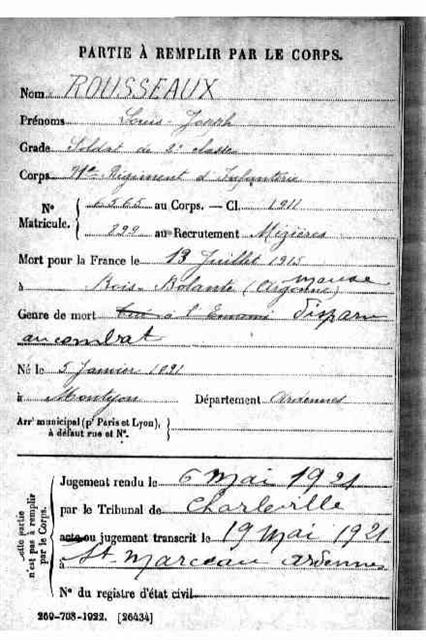 PARTIE À REMPLIR PAR LE CORPS.
Nom ROUSSEAUX
Prénoms Louis-Joseph
Grade Soldat de 2e classe
Corps 91e Régiment d'Infanterie
N° Matricule. { 5265 au Corps. — Cl. 1911
899 au Recrutement Mézières
Mort pour la France le 13 Juillet 1915
à Bois-Bolante (Argonne) meuse
Genre de mort tué à l'Ennemi disparu
au combat
Né le 5 Janvier 1891
à Département Ardennes
Arrt municipal (pr Paris et Lyon), à défaut rue et N°. }
Cette partie n'est pas à remplir par le Corps.
Jugement rendu le 6 mai 1921
par le Tribunal de Charleville
acte ou jugement transcrit le 19 mai 1921
à St Marceau Ardennes
N° du registre d'état civil
269-708-1922. [26434]